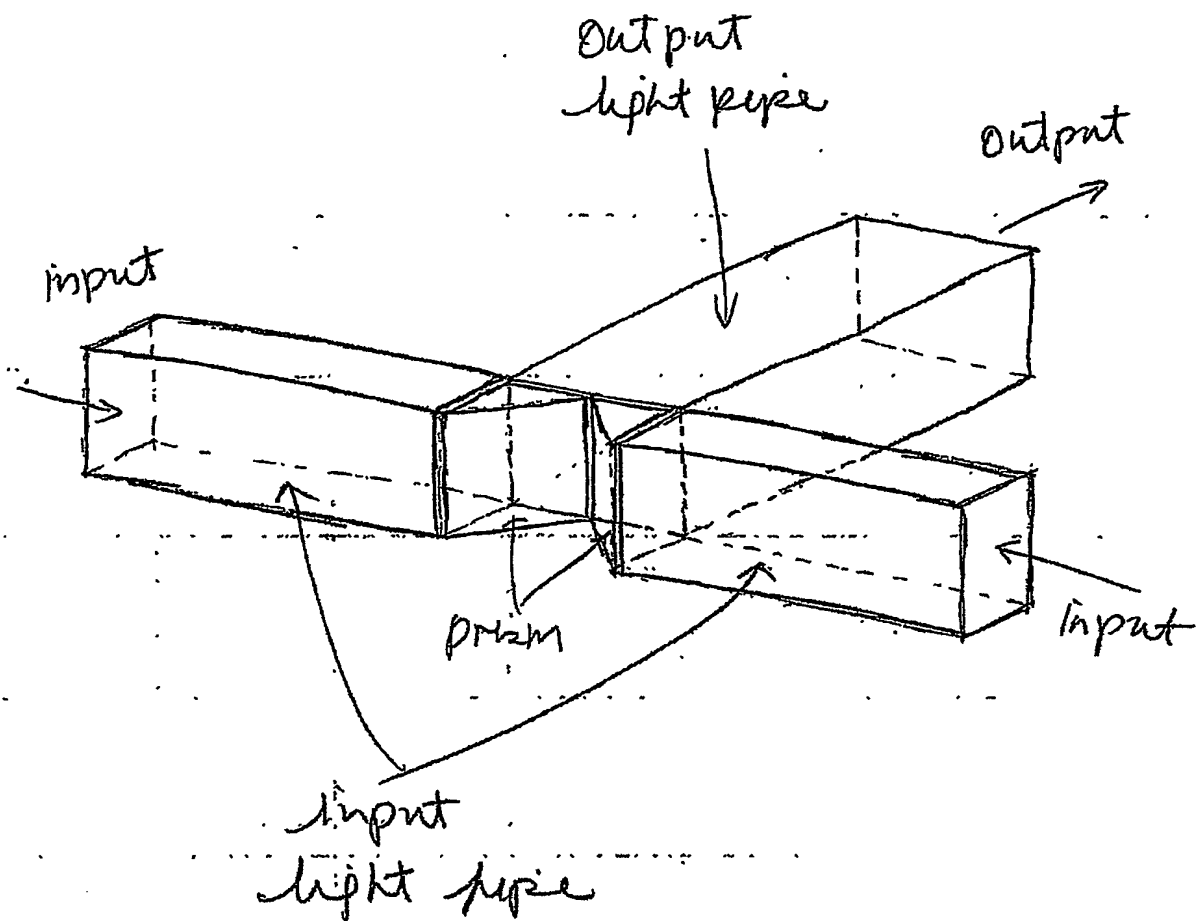 Output
light pipe
Output
input
prism
input
input
light pipe